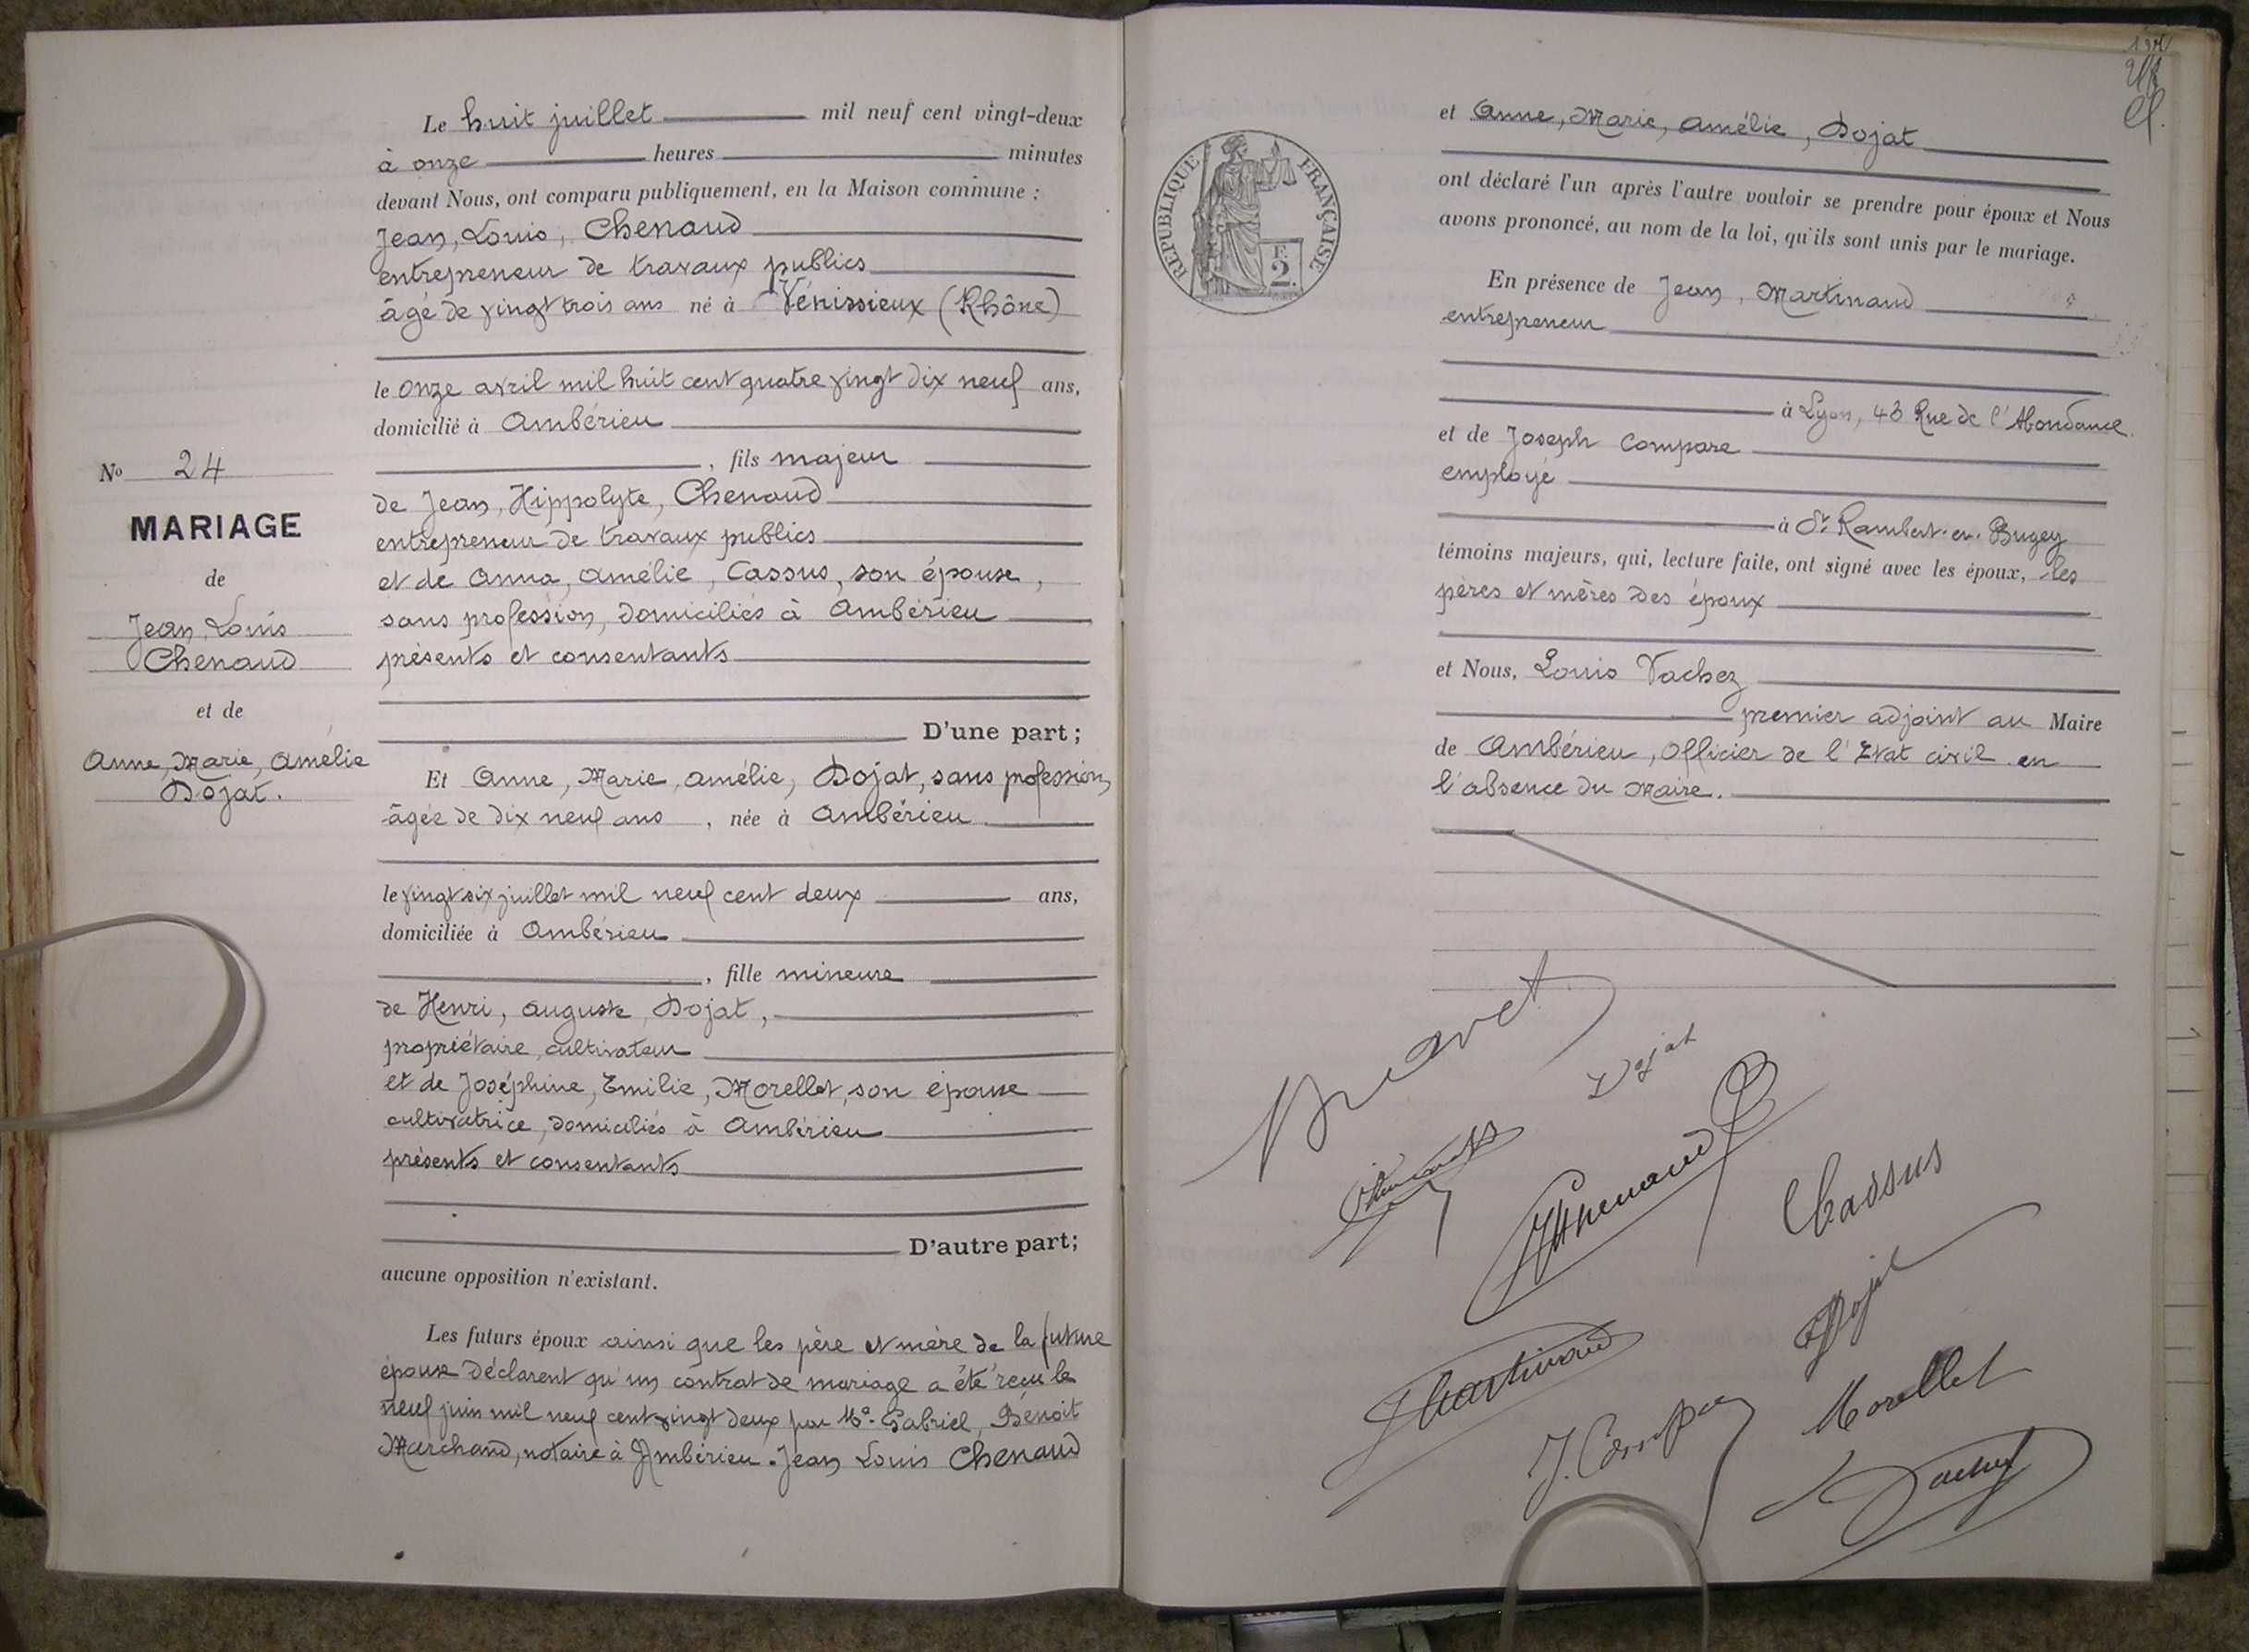 Le huit juillet mil neuf cent vingt-deux
à onze heures minutes
devant Nous, ont comparu publiquement, en la Maison commune :
Jean, Louis, Chenaud
entrepreneur de travaux publics
âgé de vingt trois ans né à Vénissieux (Rhône)
le onze avril mil huit cent quatre vingt dix neuf ans,
domicilié à Ambérieu
, fils majeur
de Jean, Hippolyte, Chenaud
entrepreneur de travaux publics
et de Anna, Amélie, Cassus, son épouse,
sans profession, domiciliés à Ambérieu
présents et consentants
D'une part ;
Et Anne, Marie, Amélie, Dojat, sans profession,
âgée de dix neuf ans , née à Ambérieu
le vingt six juillet mil neuf cent deux ans,
domiciliée à Ambérieu
, fille mineure
de Henri, Auguste, Dojat,
propriétaire, cultivateur
et de Joséphine, Emilie, Morellet, son épouse
cultivatrice, domiciliés à Ambérieu
présents et consentants
D'autre part ;
aucune opposition n'existant.
Les futurs époux ainsi que les père et mère de la future
épouse déclarent qu'un contrat de mariage a été reçu le
neuf juin mil neuf cent vingt deux par Me. Gabriel, Benoit
Marchand, notaire à Ambérieu. Jean Louis Chenaud
No 24
MARIAGE
de
Jean, Louis
Chenaud
et de
Anne, Marie, Amélie
Dojat.
REPUBLIQUE FRANÇAISE
F.
2.
et Anne, Marie, Amélie, Dojat
ont déclaré l'un après l'autre vouloir se prendre pour époux et Nous
avons prononcé, au nom de la loi, qu'ils sont unis par le mariage.
En présence de Jean, Martinaud
entrepreneur
à Lyon, 43 Rue de l'Abondance.
et de Joseph Compare
employé
à St. Rambert-en-Bugey
témoins majeurs, qui, lecture faite, ont signé avec les époux, les
pères et mères des époux
et Nous, Louis Vachez
premier adjoint au Maire
de Ambérieu, Officier de l'Etat civil en
l'absence du Maire.
Dojat
Chenaud
Cassus
Dojat
Martinaud
Morellet
Vachez